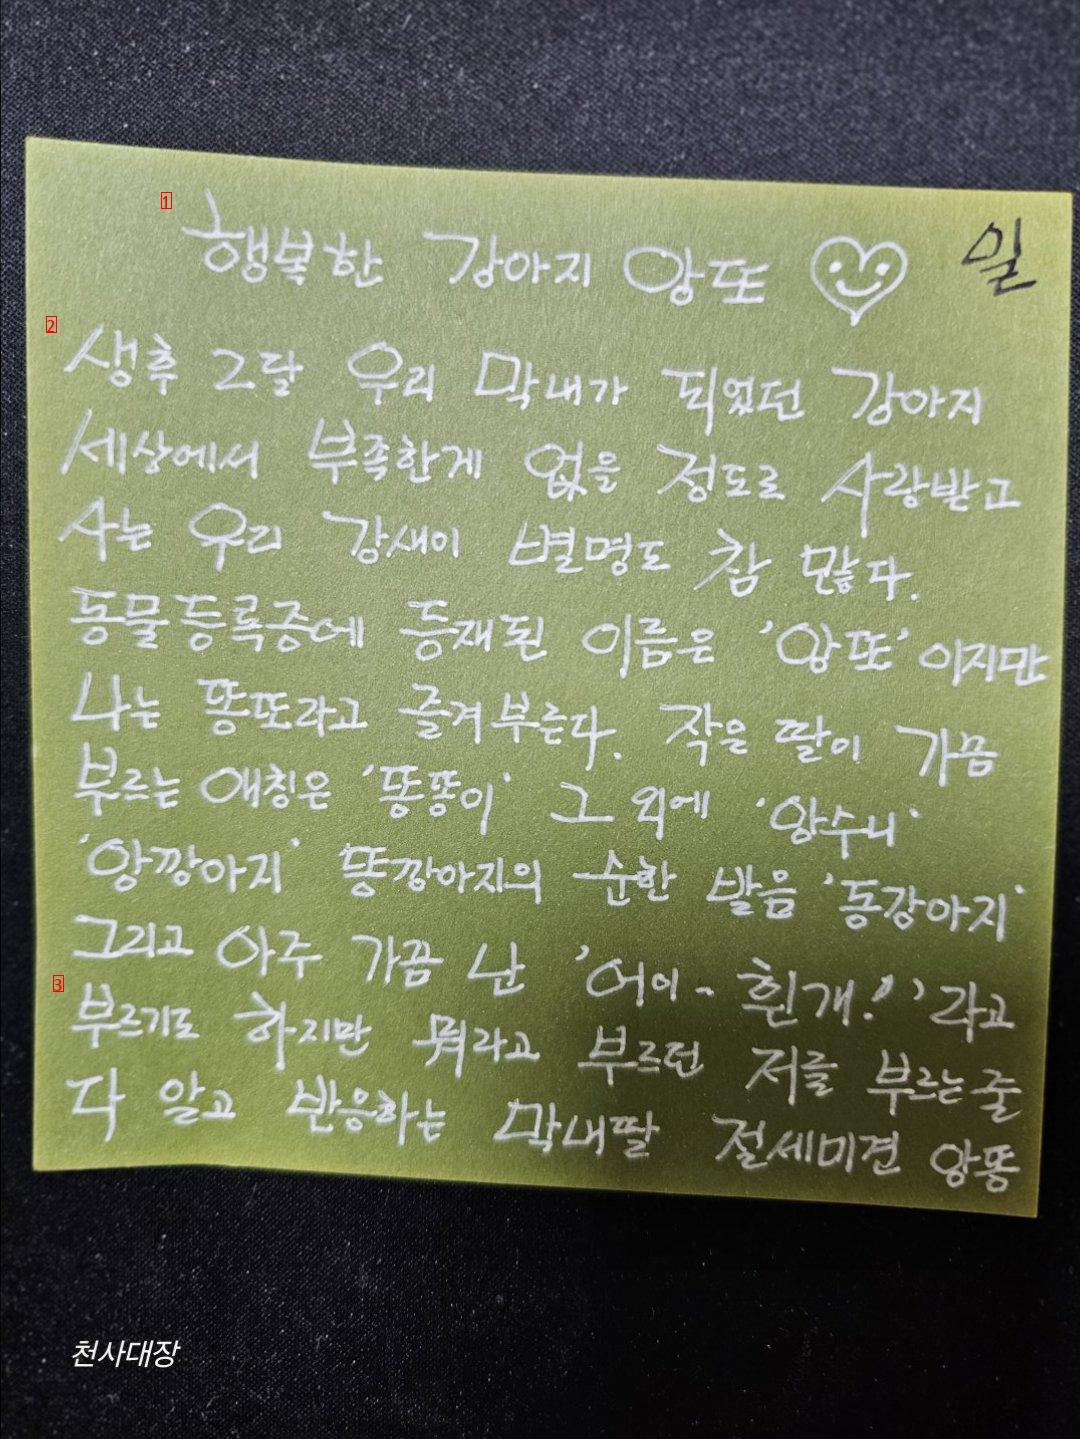 행복한 강아지 앙또 일
생후 그달 우리 막내가 되었던 강아지
세상에서 부족한게 없을 정도로 사랑받고
사는 우리 강새이 별명도 참 많다.
동물등록증에 등재된 이름은 '앙또' 이지만
나는 똥또라고 즐겨부른다. 작은 딸이 가끔
부르는 애칭은 '똥똥이' 그 외에 '앙수니'
'앙깡아지' 똥깡아지의 순한 발음 '동강아지'
그리고 아주 가끔 난 '어이~ 흰개!' 라고
부르기도 하지만 뭐라고 부르던 저를 부르는줄
다 알고 반응하는 막내딸 절세미견 앙똥
천사대장
1
2
3